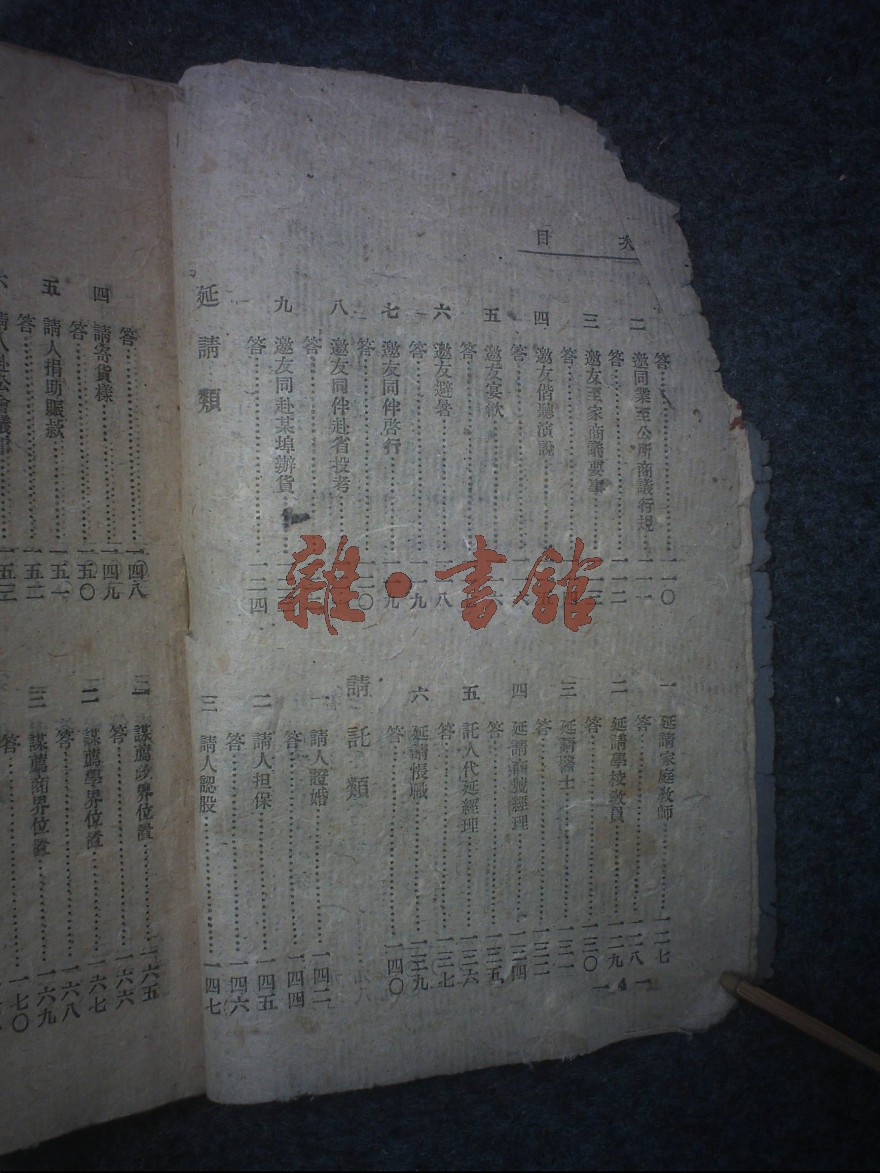 目 次
答 一一〇
二 邀同業至公所商議行規 一一一
答 一一二
三 邀友至家商議要事
答
四 邀友偕聽演說
答
五 邀友宴飲
答 八
六 邀友避暑
答 一一九
七 邀友同伴啓行
答 一二〇
八 邀友同伴赴省投考
答
九 邀友同赴某埠辦貨
答 一二四
延請類
一 延請家庭敎師 一二七
答 一二八
二 延請學校敎員 一二九
答 一三〇
三 延請醫士 一三一
答 一三二
四 延請商號經理 一三四
答 一三五
五 託人代延經理 一三六
答 一三七
六 延請帳職 一三九
答 一四〇
請託類
一 請人證婚 一四二
答 一四四
二 請人担保 一四五
答 一四六
三 請人認股 一四七
— 4 —
答 一四八
四 請寄貨樣 一四九
答 一五〇
五 請人捐助賑款 一五一
答 一五二
六 請人赴公會議事 一五三
謀薦政界位置 一六五
答 一六六
二 謀薦學界位置 一六七
答 一六八
三 謀薦商界位置 一六九
答 一七〇
雜·書館